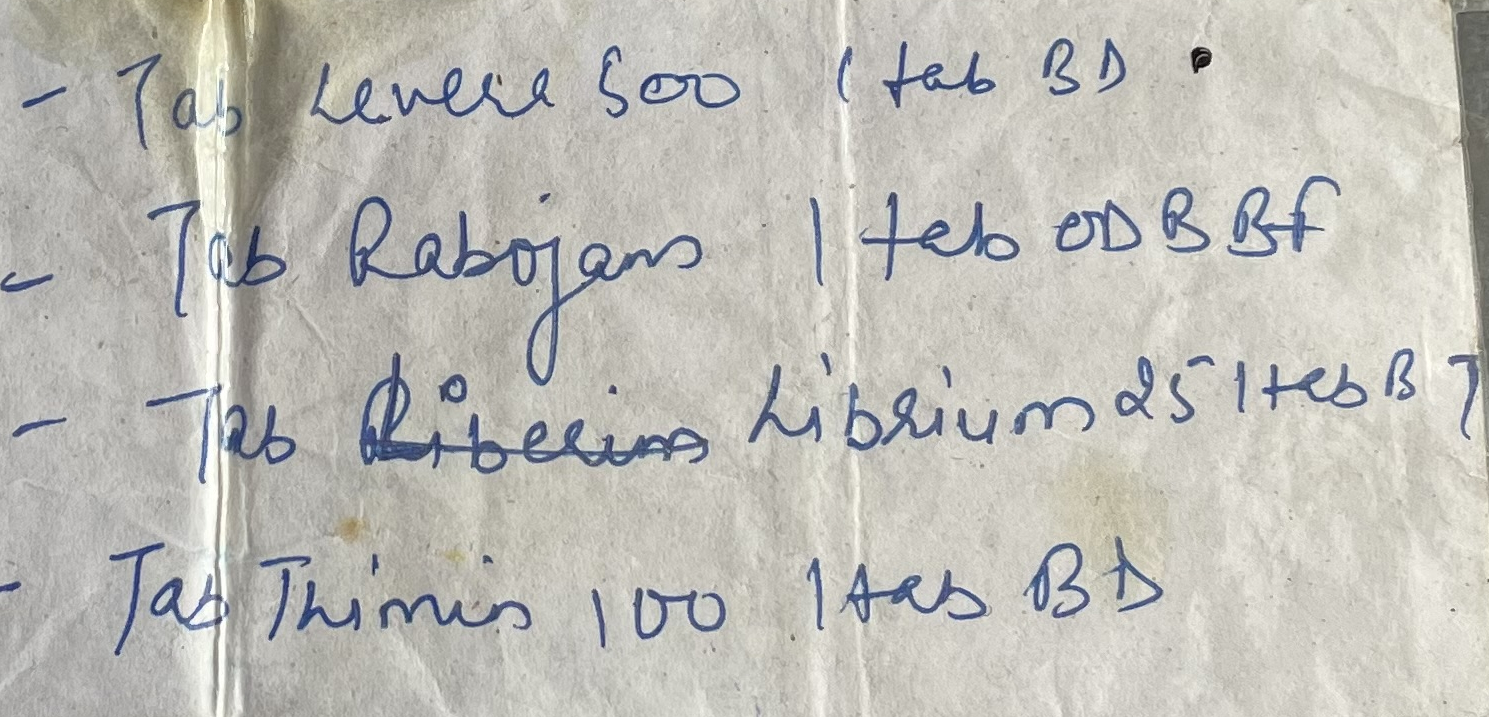 - Tab Levera 500 1 tab BD
- Tab Rabojans 1 tab OD B Bf
- Tab Librium 25 1 tab B
- Tab Thimin 100 1 tab BD